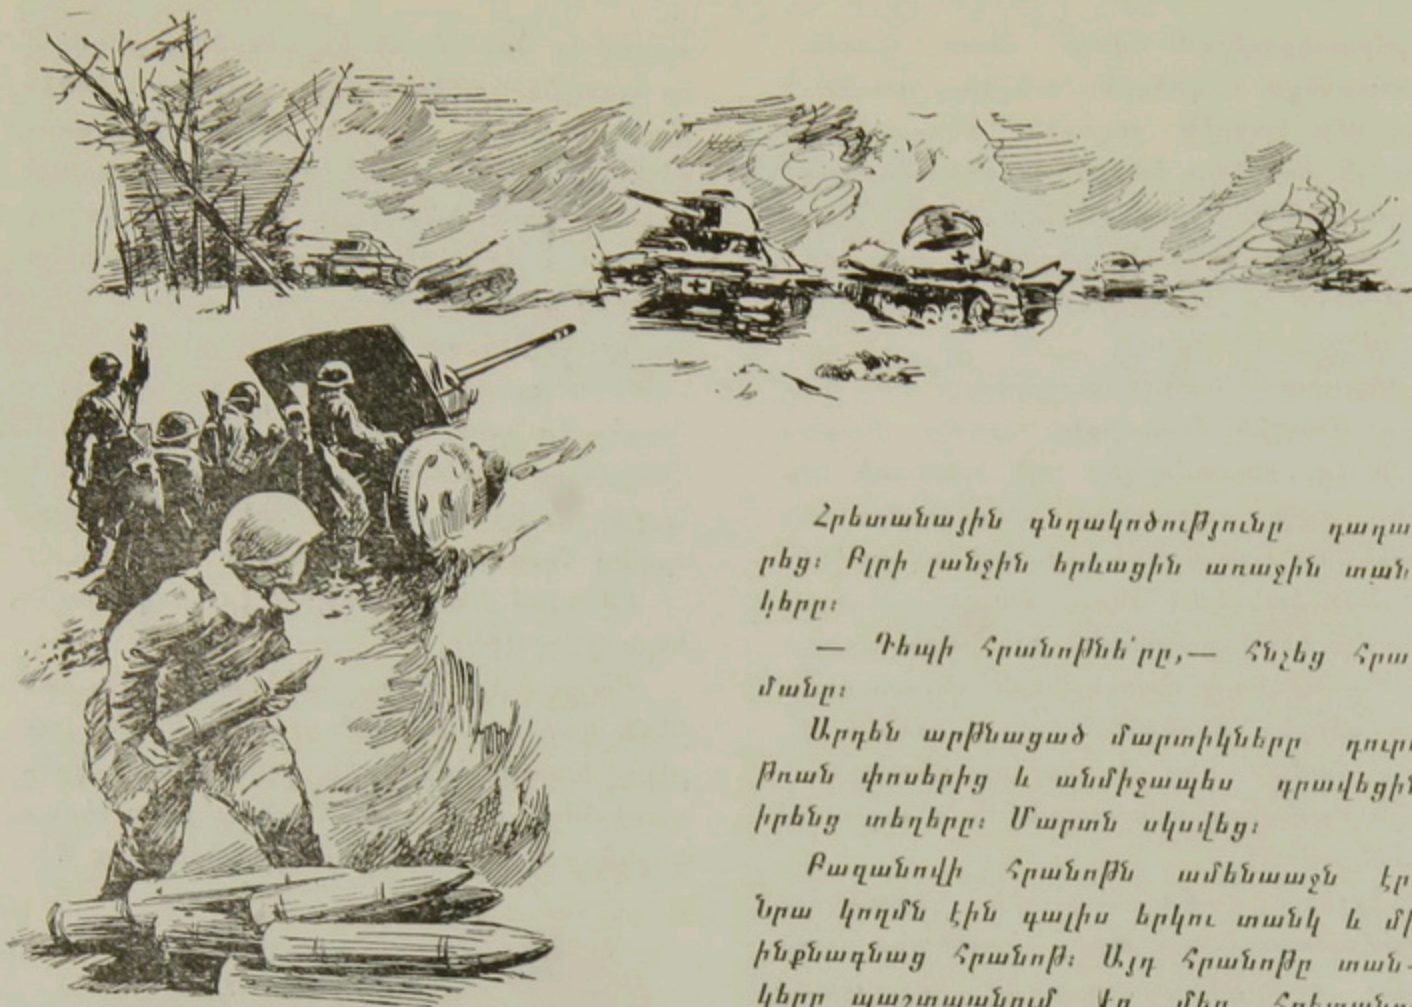 Հրետանային գնդակոծությունը դադա-
րեց։ Բլրի լանջին երևացին առաջին տան-
կերը։
— Դեպի հրանոթնե՛րը,— հնչեց հրա-
մանը։
Արդեն արթնացած մարտիկները դուրս
թռան փոսերից և անմիջապես գրավեցին
իրենց տեղերը։ Մարտն սկսվեց։
Բաղանովի հրանոթն ամենաաջն էր
Նրա կողմն էին գալիս երկու տանկ և մի
ինքնագնաց հրանոթ։ Այդ հրանոթը տան-
կերը պաշտպանում էր մեր